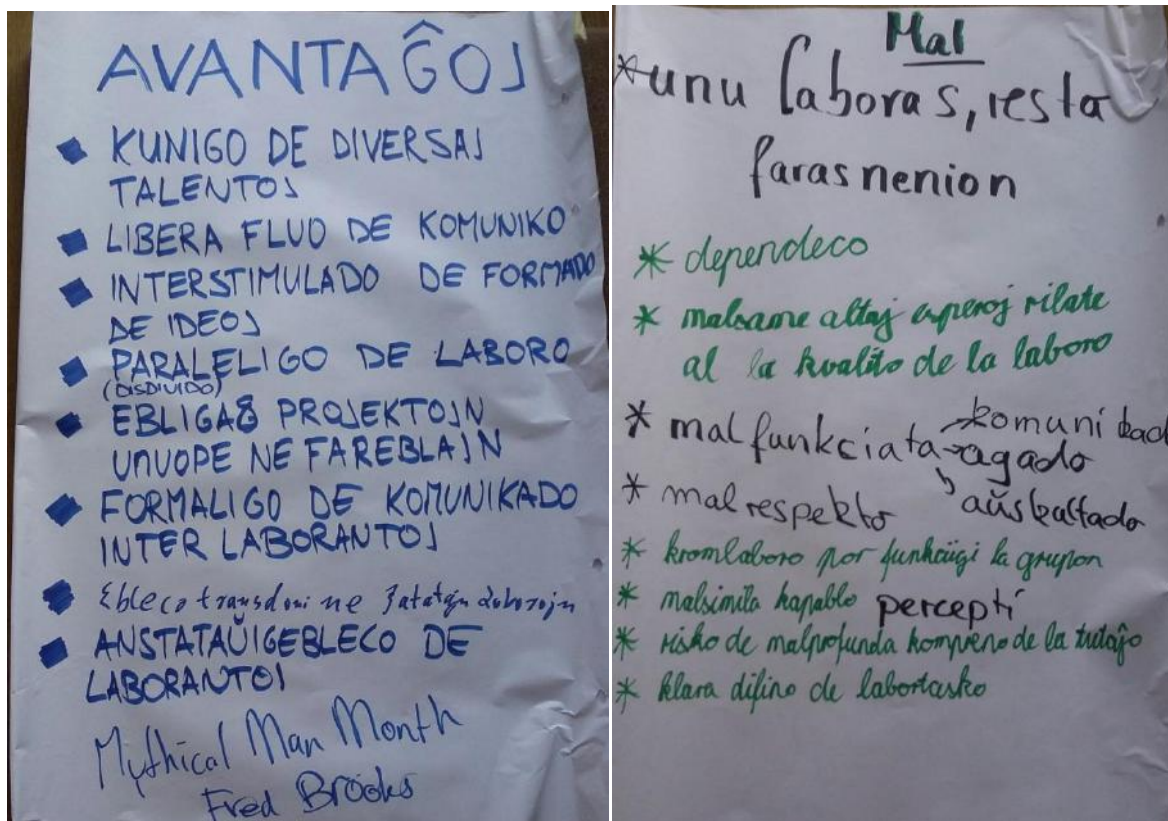 AVANTAĜOJ
KUNIGO DE DIVERSAJ
TALENTOJ
LIBERA FLUO DE KOMUNIKO
INTERSTIMULADO DE FORMADO
DE IDEOJ
PARALELIGO DE LABORO
(DISDIVIDO)
EBLIGAS PROJEKTOJN
UNUOPE NE FAREBLAJN
FORMALIGO DE KOMUNIKADO
INTER LABORANTOJ
Ebleco transdoni ne ŝatatajn laborojn
ANSTATAŬIGEBLECO DE
LABORANTOJ
Mythical Man Month
Fred Brooks
Mal
*unu laboras, resta
faras nenion
* dependeco
* malsame altaj esperoj rilate
al la kvalito de la laboro
* malfunkciata komunikad
agado
aŭskultado
* malrespekto
* kromlaboro por funkciigi la grupon
* malsimila kapablo percepti
* risko de malprofunda kompreno de la tutaĵo
* klara difino de labortasko